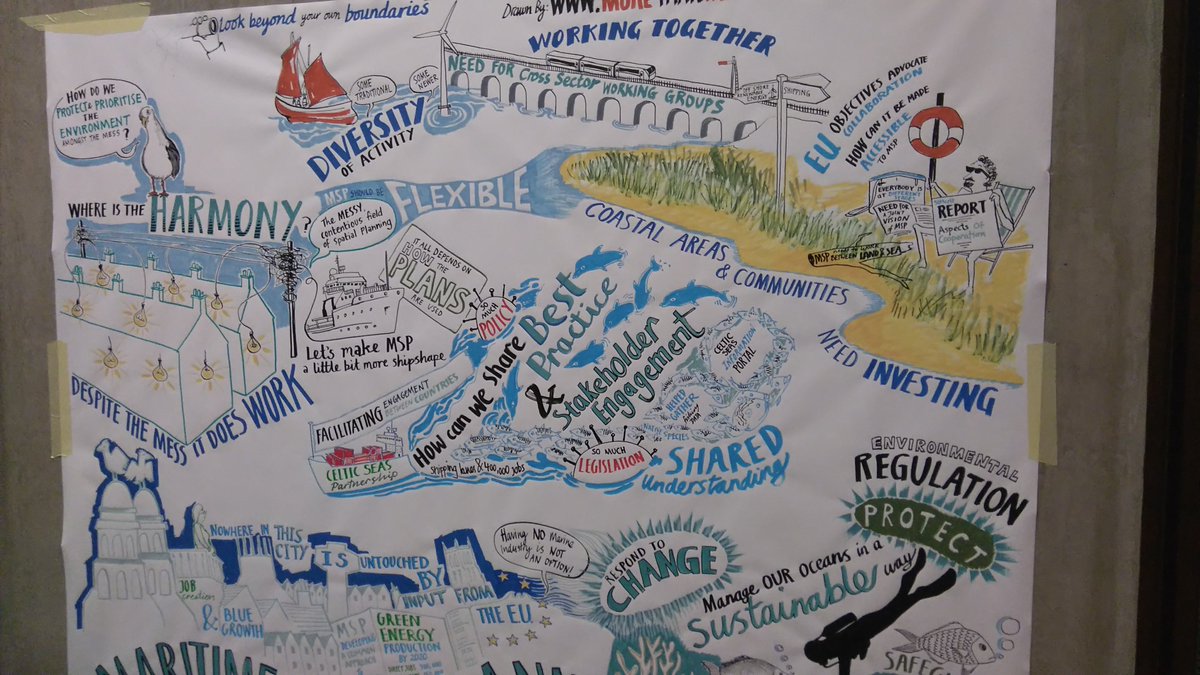 Look beyond your own boundaries
Drawn By: WWW.MORE
WORKING TOGETHER
NEED FOR Cross Sector WORKING GROUPS
SOME TRADITIONAL
SOME NEWER
DIVERSITY
OF ACTIVITY
OFF SHORE
RENEWABLE
ENERGY
SHIPPING
EU OBJECTIVES ADVOCATE
COLLABORATION
HOW CAN IT BE MADE
ACCESSIBLE
TO MSP
HOW DO WE
PROTECT & PRIORITISE
THE
ENVIRONMENT
AMONGST THE MESS?
WHERE IS THE HARMONY?
MSP SHOULD BE FLEXIBLE
The MESSY
contentious field
of Spatial Planning
IT ALL DEPENDS ON
HOW THE
PLANS
ARE USED
Let's make MSP
a little bit more shipshape
DESPITE THE MESS IT DOES WORK
COASTAL AREAS
& COMMUNITIES
NEED INVESTING
EVERYBODY IS
AT DIFFERENT
STAGES
NEED FOR
A JOINT
VISION OF MSP
REPORT
Aspects Of
Cooperation
MSP
BETWEEN LAND & SEA
SO MUCH
POLICY
How can we share Best
Practice
& Stakeholder
Engagement
CELTIC
SEAS
INFORMATION
PORTAL
FACILITATING ENGAGEMENT
BETWEEN COUNTRIES
CELTIC SEAS
Partnership
Shipping lanes & 400,000 jobs
SO MUCH
LEGISLATION
SHARED
Understanding
ENVIRONMENTAL
REGULATION
PROTECT
Manage OUR oceans in a
Sustainable way
RESPOND TO
CHANGE
Having NO Marine
Industry is NOT
AN OPTION!
NOWHERE IN THIS
CITY IS UNTOUCHED
BY
INPUT FROM
THE EU
JOB
creation
& BLUE
GROWTH
MSP
DEVELOPING
A COMMON
APPROACH
GREEN
ENERGY
PRODUCTION
BY 2020
MARITIME